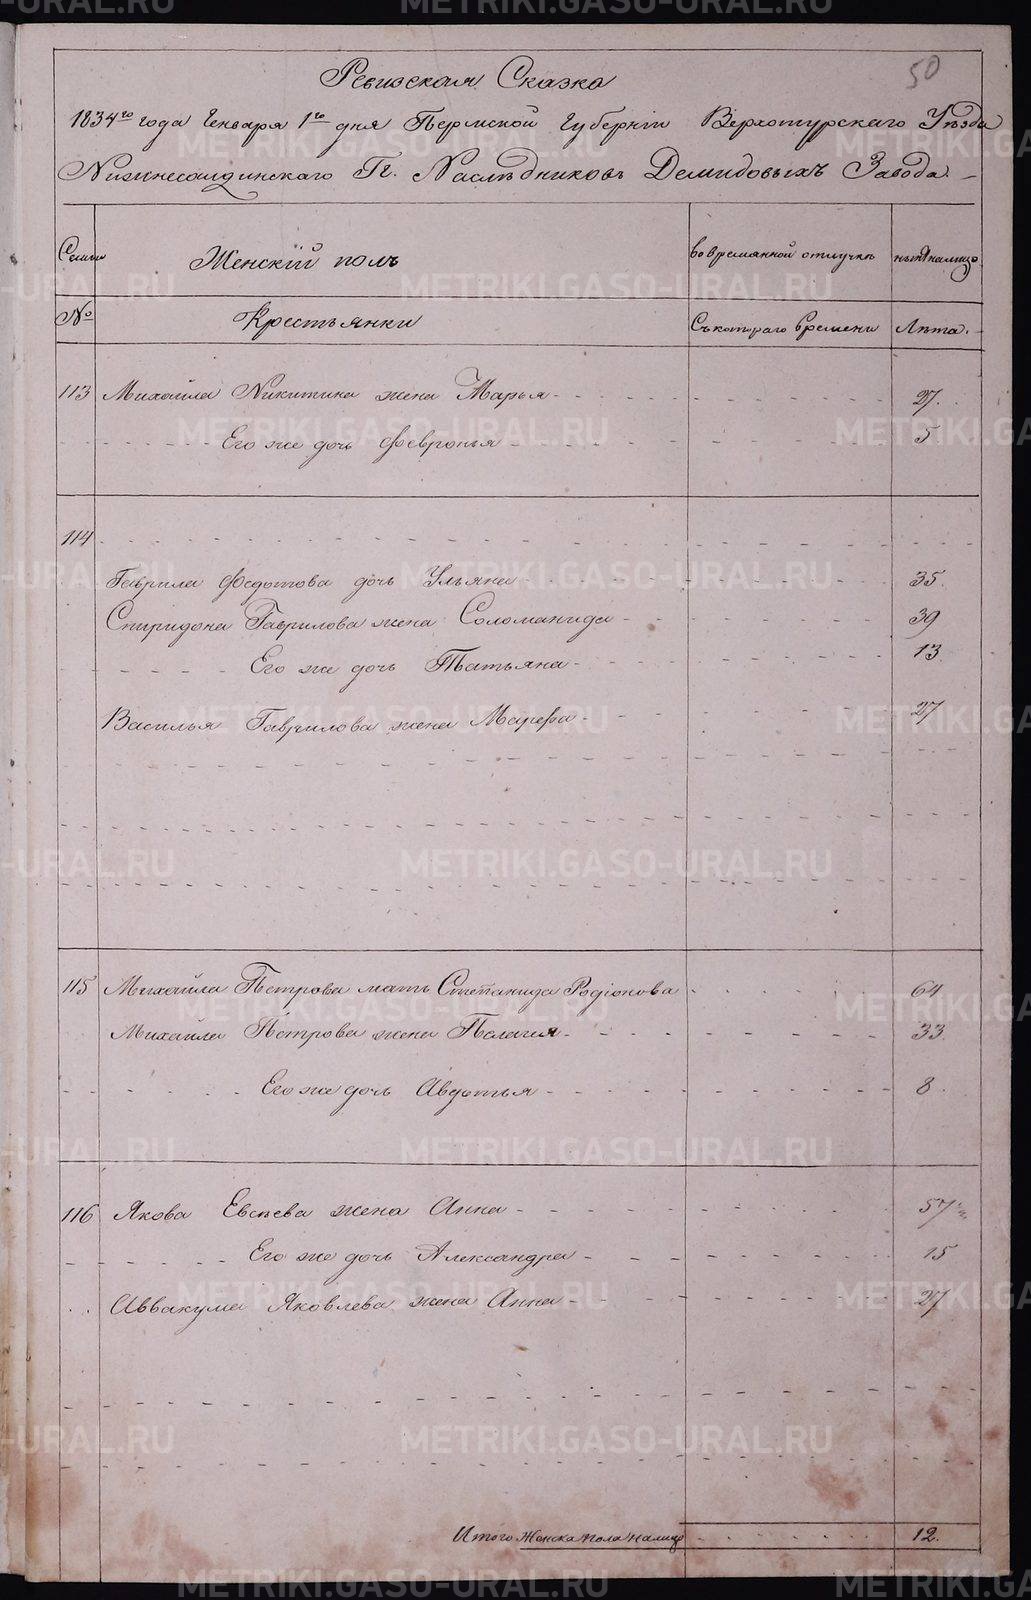 50
Ревизская Сказка
1834го года Генваря 1го дня Пермской Губернiи Верхотурскаго Уѣзда
Нижнесалдинскаго Гг. Наслѣдниковъ Демидовыхъ Завода.
Семьи Женскiй полъ во временной отлучкѣ нынѣ налицо
№ Крестьянки Съ котораго времени Лѣта.
113 Михайла Никитина жена Марья 27.
Его же дочь Февронья 5
114
Гаврила Федотова дочь Ульяна 35.
Спиридона Гаврилова жена Соломанида 39
Его же дочь Татьяна 13
Василья Гаврилова жена Марефа 27
115 Михайла Петрова мать Степанида Родiонова 64
Михайла Петрова жена Пелагея 33.
Его же дочь Авдотья 8
116 Якова Евсѣева жена Анна 57
Его же дочь Александра 15
Аввакума Яковлева жена Анна 27
Итого женска пола налицо 12.
METRIKI.GASO-URAL.RU